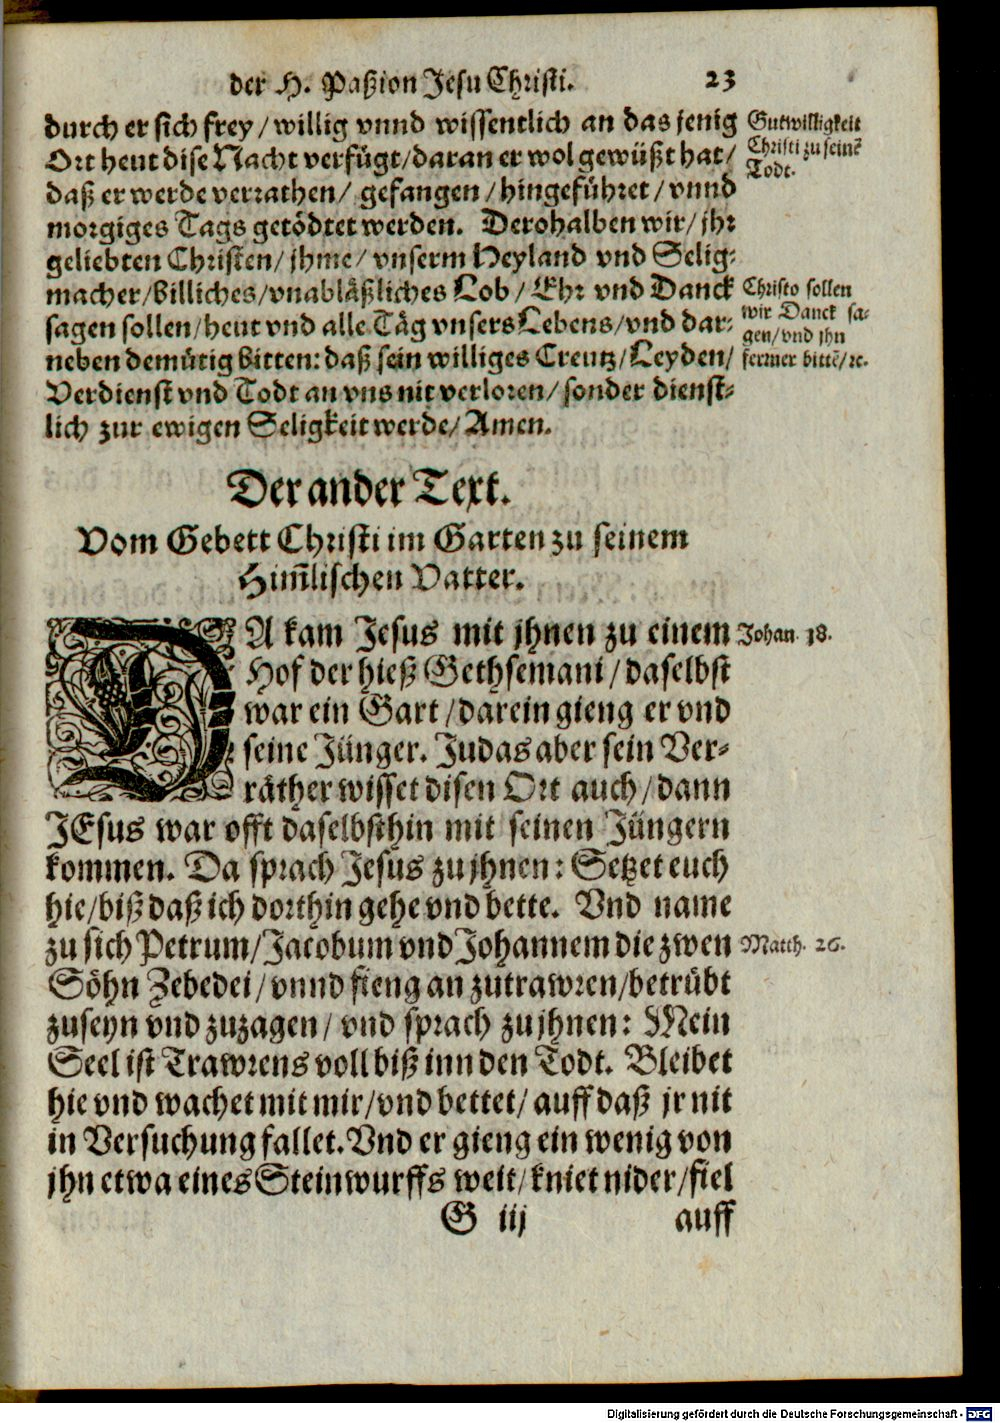 der H. Paßion Jesu Christi. 23
durch er sich frey/willig vnnd wissentlich an das jenig
Ort heut dise Nacht verfügt/daran er wol gewüßt hat/
daß er werde verrathen/ gefangen/hingeführet/vnnd
morgiges Tags getödtet werden. Derohalben wir/jhr
geliebten Christen/jhme/vnserm Heyland vnd Selig-
macher/billiches/vnabläßliches Lob/Ehr vnd Danck
sagen sollen/heut vnd alle Täg vnsers Lebens/vnd dar-
neben demütig bitten: daß sein williges Creutz/Leyden/
Verdienst vnd Todt an vns nit verloren/sonder dienst-
lich zur ewigen Seligkeit werde/Amen.
Gutwilligkeit
Christi zu seinē
Todt.
Christo sollen
wir Danck sa-
gen/vnd jhn
ferner bittē/ꝛc.
Der ander Text.
Vom Gebett Christi im Garten zu seinem
Him̃lischen Vatter.
DA kam Jesus mit jhnen zu einem
Hof der hieß Gethsemani/daselbst
war ein Gart/darein gieng er vnd
seine Jünger. Judas aber sein Ver-
räther wisset disen Ort auch/dann
JEsus war offt daselbsthin mit seinen Jüngern
kommen. Da sprach Jesus zu jhnen: Setzet euch
hie/biß daß ich dorthin gehe vnd bette. Vnd name
zu sich Petrum/Jacobum vnd Johannem die zwen
Söhn Zebedei/vnnd fieng an zutrawren/betrübt
zuseyn vnd zuzagen/vnd sprach zu jhnen: Mein
Seel ist Trawrens voll biß inn den Todt. Bleibet
hie vnd wachet mit mir/vnd bettet/auff daß jr nit
in Versuchung fallet. Vnd er gieng ein wenig von
jhn etwa eines Steinwurffs weit/kniet nider/fiel
Johan. 18.
Matth. 26.
G iij auff
Digitalisierung gefördert durch die Deutsche Forschungsgemeinschaft - DFG